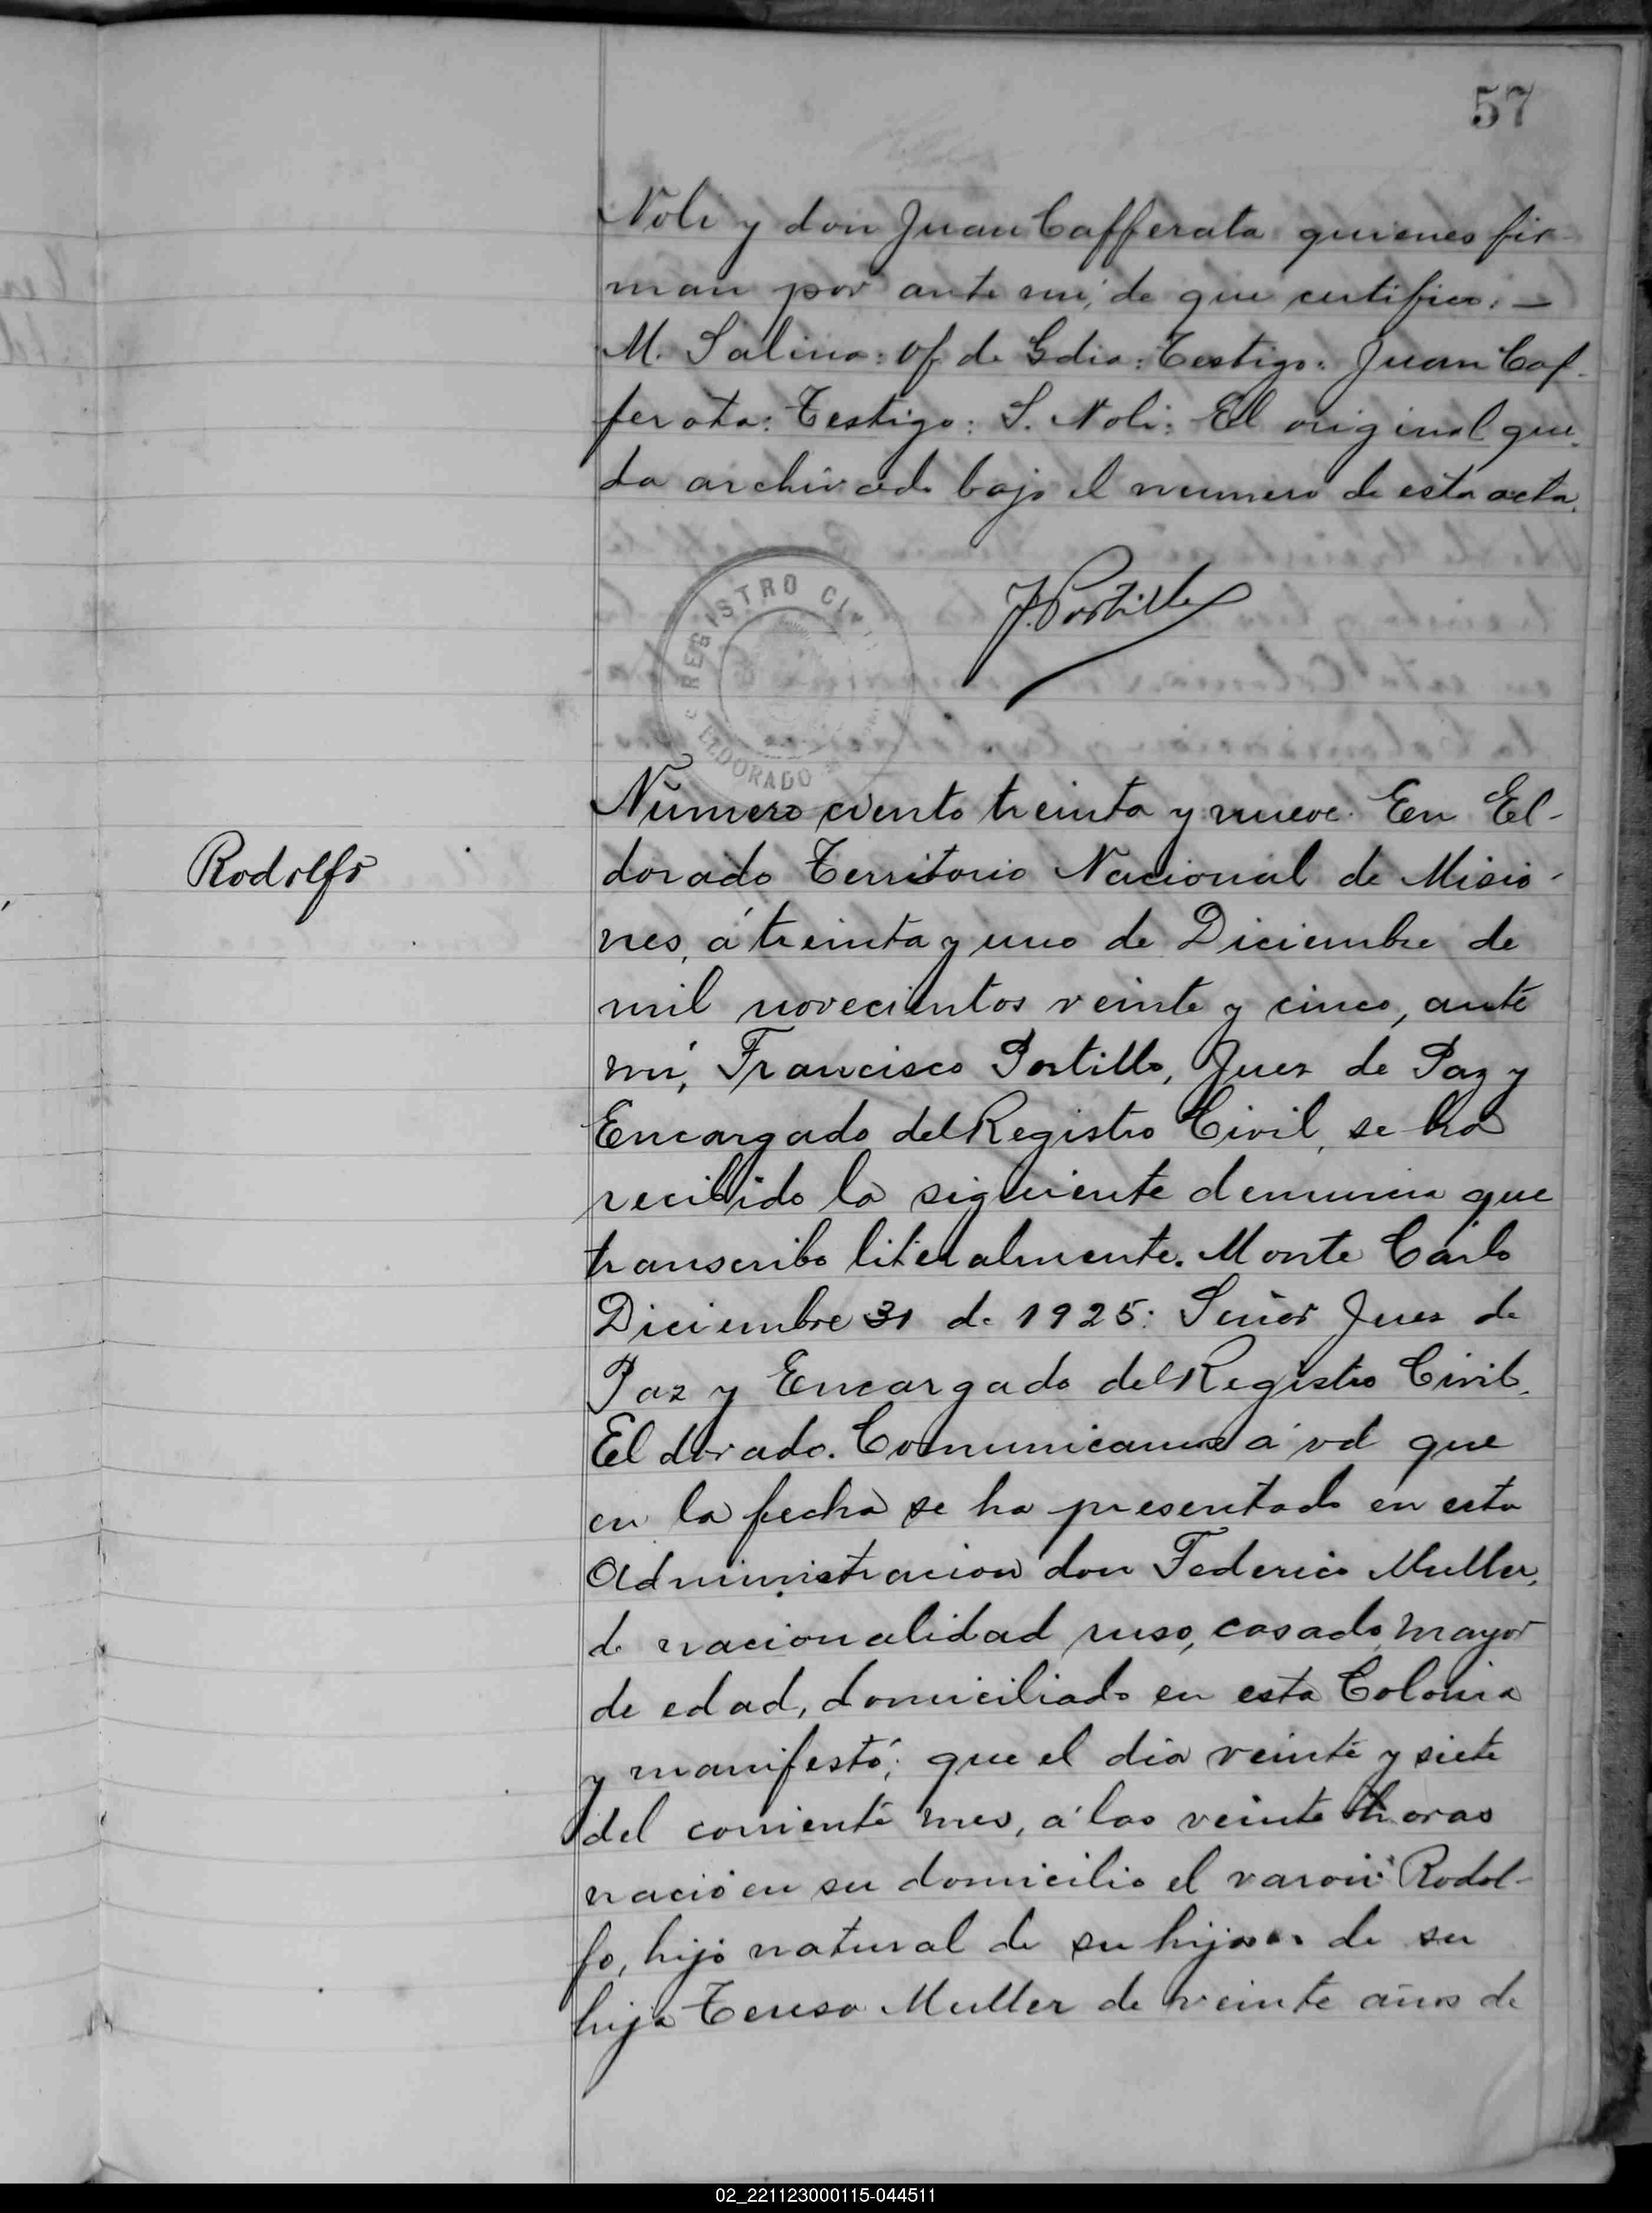 57
Noli y don Juan Cafferata quienes fir-
man por ante mi, de que certifico. —
M. Salina: Of de Gdia: Testigo: Juan Caf-
ferata: Testigo: S. Noli: El original que-
da archivado bajo el numero de esta acta.
F. Portillo
REGISTRO CIVIL
ELDORADO
Rodolfo
Número ciento treinta y nueve. En El-
dorado Territorio Nacional de Misio-
nes, á treinta y uno de Diciembre de
mil novecientos veinte y cinco, ante
mí, Francisco Portillo, Juez de Paz y
Encargado del Registro Civil, se ha
recibido la siguiente denuncia que
transcribo literalmente. Monte Carlo
Diciembre 31 de 1925: Señor Juez de
Paz y Encargado del Registro Civil.
Eldorado. Comunicamos á vd que
en la fecha se ha presentado en esta
Administracion don Federico Muller,
de nacionalidad ruso, casado, mayor
de edad, domiciliado en esta Colonia
y manifestó; que el dia veinte y siete
del corriente mes, á las veinte horas
nació en su domicilio el varon Rodol-
fo, hijo natural de su hija de su
hija Teresa Muller de veinte años de
02_221123000115-044511